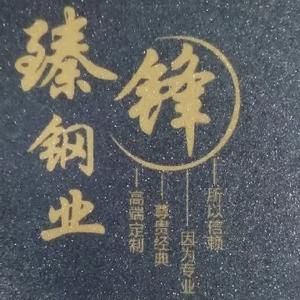 臻钢业
锋
高端定制
尊贵经典
因为专业
所以信赖